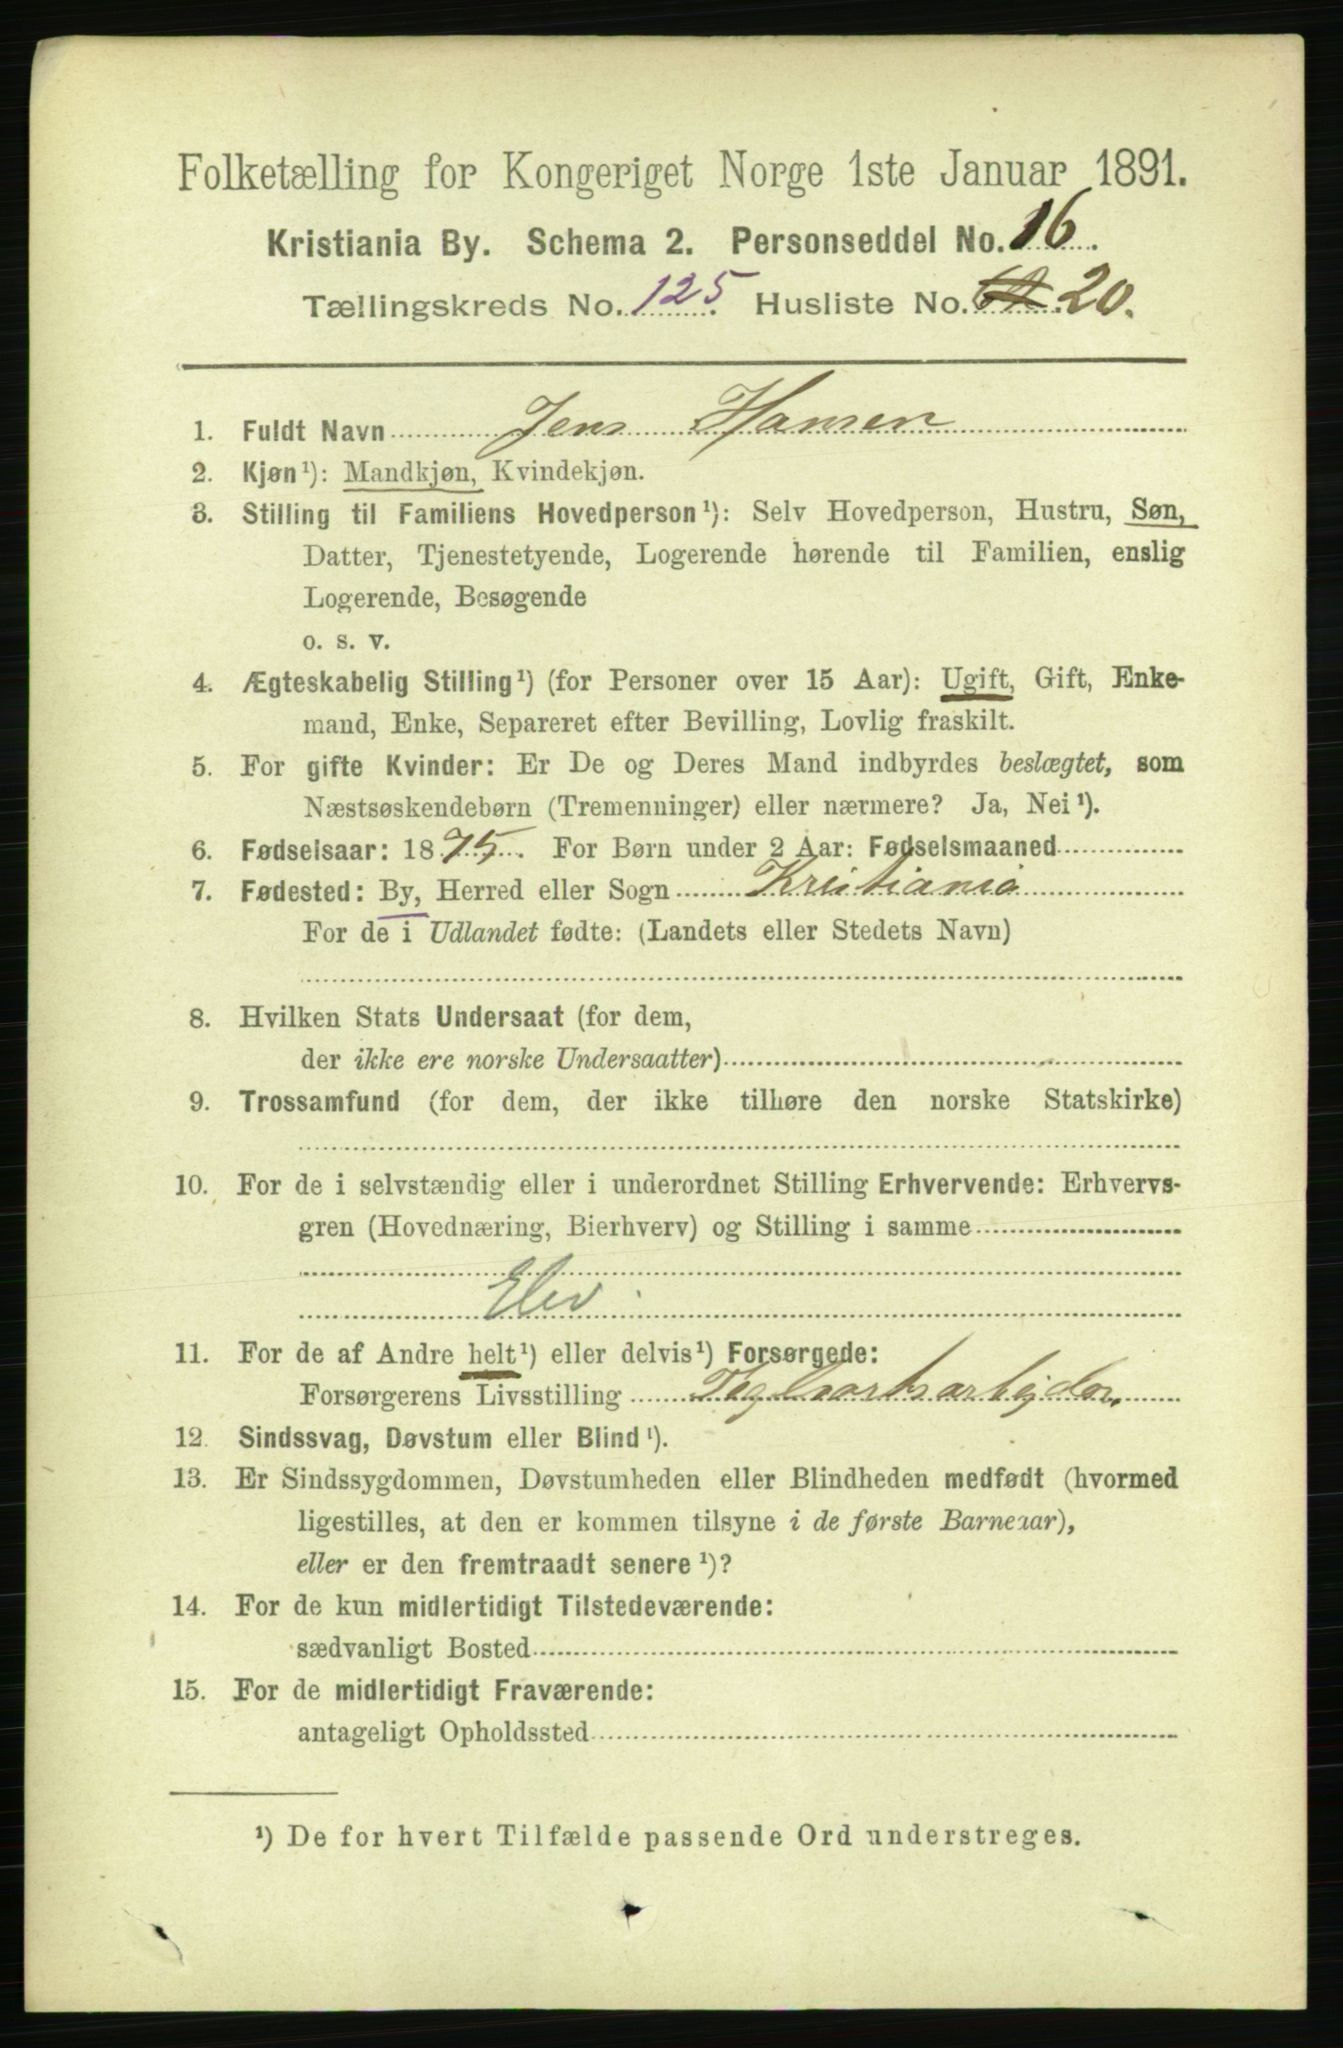 Folketælling for Kongeriget Norge 1ste Januar 1891.
Kristiania By. Schema 2. Personseddel No. 16.
Tællingskreds No. 125. Husliste No. 20.
1. Fuldt Navn Jens Hansen
2. Kjøn¹): Mandkjøn, Kvindekjøn.
3. Stilling til Familiens Hovedperson¹): Selv Hovedperson, Hustru, Søn,
Datter, Tjenestetyende, Logerende hørende til Familien, enslig
Logerende, Besøgende
o. s. v.
4. Ægteskabelig Stilling¹) (for Personer over 15 Aar): Ugift, Gift, Enke-
mand, Enke, Separeret efter Bevilling, Lovlig fraskilt.
5. For gifte Kvinder: Er De og Deres Mand indbyrdes beslægtet, som
Næstsøskendebørn (Tremenninger) eller nærmere? Ja, Nei¹).
6. Fødselsaar: 1875. For Børn under 2 Aar: Fødselsmaaned
7. Fødested: By, Herred eller Sogn Kristiania
For de i Udlandet fødte: (Landets eller Stedets Navn)
8. Hvilken Stats Undersaat (for dem,
der ikke ere norske Undersaatter)
9. Trossamfund (for dem, der ikke tilhøre den norske Statskirke)
10. For de i selvstændig eller i underordnet Stilling Erhvervende: Erhvervs-
gren (Hovednæring, Bierhverv) og Stilling i samme
Elev
11. For de af Andre helt¹) eller delvis¹) Forsørgede:
Forsørgerens Livsstilling Teglværksarbejder.
12. Sindssvag, Døvstum eller Blind¹).
13. Er Sindssygdommen, Døvstumheden eller Blindheden medfødt (hvormed
ligestilles, at den er kommen tilsyne i de første Barneaar),
eller er den fremtraadt senere¹)?
14. For de kun midlertidigt Tilstedeværende:
sædvanligt Bosted
15. For de midlertidigt Fraværende:
antageligt Opholdssted
¹) De for hvert Tilfælde passende Ord understreges.